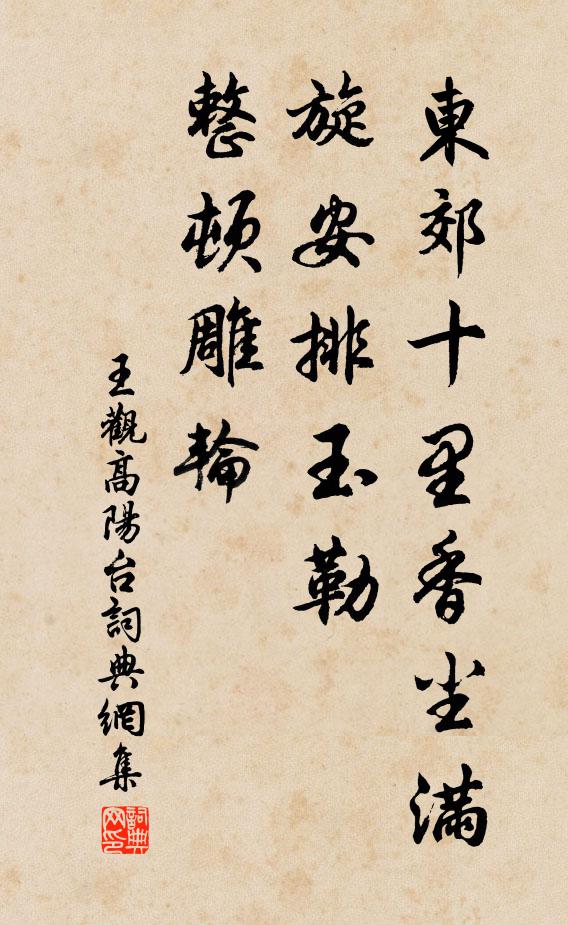 東郊十里香尘满
旋安排玉勒
整顿雕輪
王觀高陽台詞典網集
詞典网印